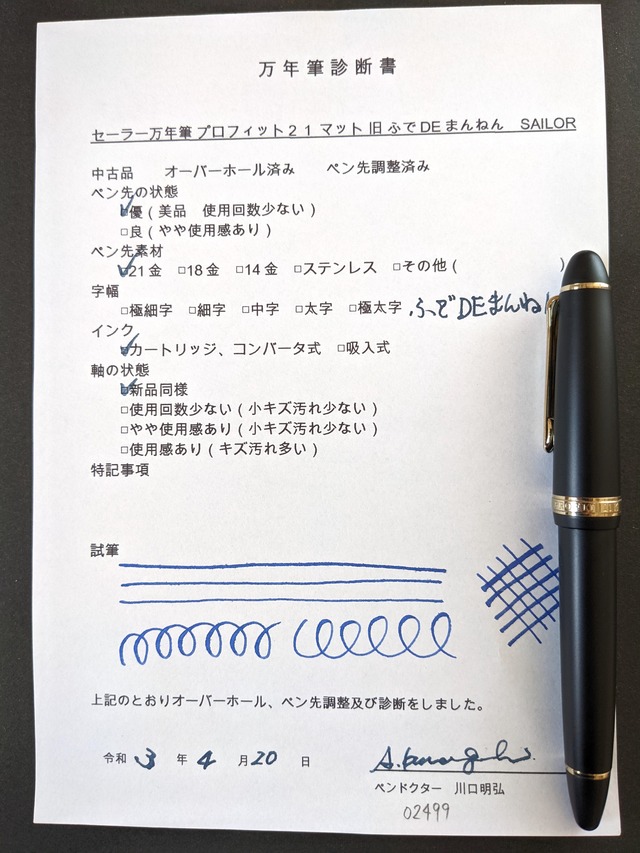 万年筆診断書
セーラー万年筆 プロフィット21 マット 旧 ふでDEまんねん SAILOR
中古品 オーバーホール済み ペン先調整済み
ペン先の状態
☑優(美品 使用回数少ない)
□良(やや使用感あり)
ペン先素材
☑21金 □18金 □14金 □ステンレス □その他( )
字幅
□極細字 □細字 □中字 □太字 □極太字 ふでDEまんねん
インク
☑カートリッジ、コンバータ式 □吸入式
軸の状態
☑新品同様
□使用回数少ない(小キズ汚れ少ない)
□やや使用感あり(小キズ汚れ少ない)
□使用感あり(キズ汚れ多い)
特記事項
試筆
上記のとおりオーバーホール、ペン先調整及び診断をしました。
令和 3 年 4 月 20 日
ペンドクター 川口明弘
02499